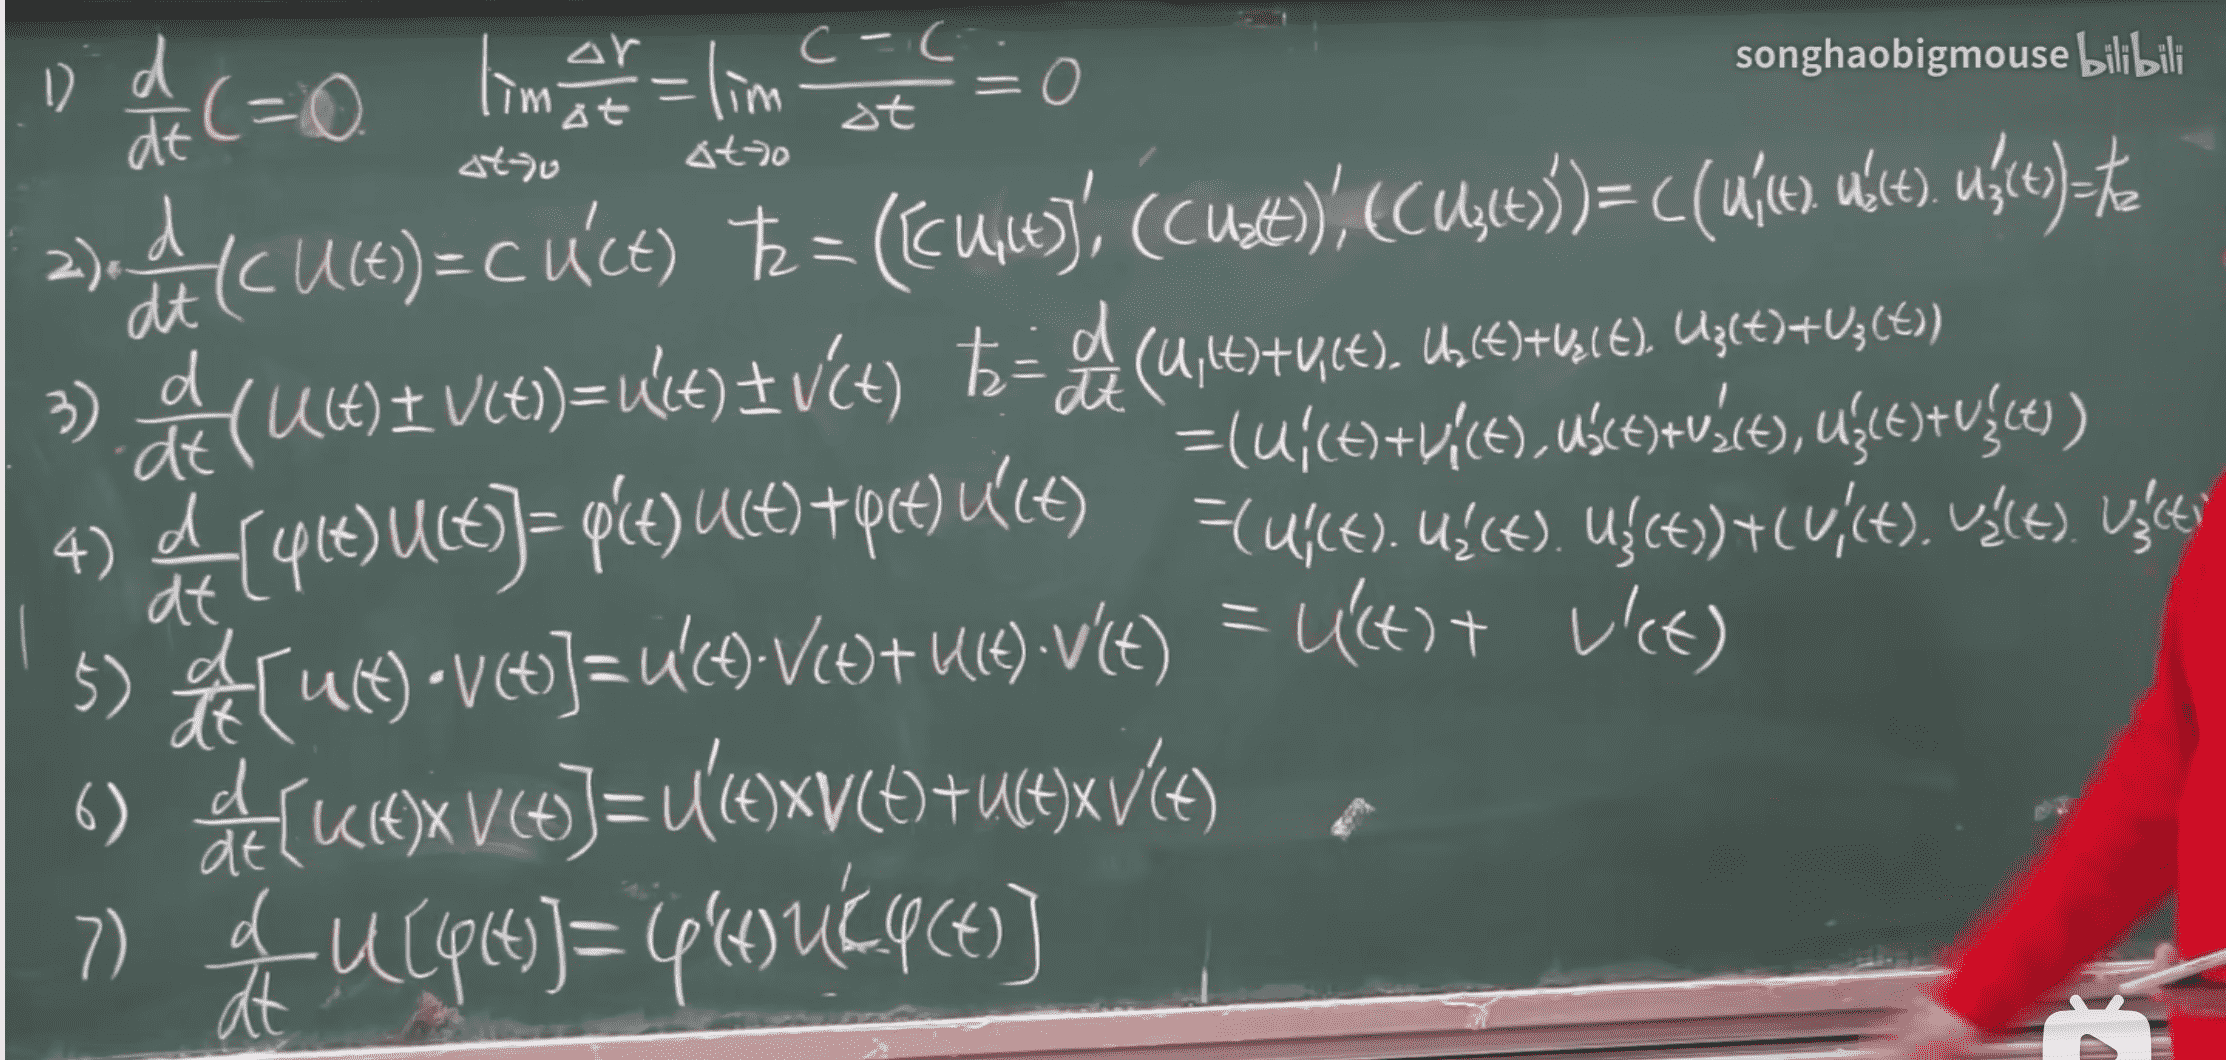 songhaobigmouse bilibili
1) d/dt C = 0 lim Δt→0 Δr/Δt = lim Δt→0 (C - C)/Δt = 0
2) d/dt (C u(t)) = C u'(t) 右 = ([C u₁(t)]', (C u₂(t))', (C u₃(t))') = C(u₁'(t). u₂'(t). u₃'(t)) = 右
3) d/dt (u(t) ± v(t)) = u'(t) ± v'(t) 左 = d/dt (u₁(t)+v₁(t). u₂(t)+v₂(t). u₃(t)+v₃(t))
=(u₁'(t)+v₁'(t), u₂'(t)+v₂'(t), u₃'(t)+v₃'(t))
4) d/dt [φ(t) u(t)] = φ'(t) u(t) + φ(t) u'(t) =(u₁'(t). u₂'(t). u₃'(t))+(v₁'(t). v₂'(t). v₃'(t)
5) d/dt [u(t)·v(t)] = u'(t)·v(t) + u(t)·v'(t) = u'(t) + v'(t)
6) d/dt [u(t)×v(t)] = u'(t)×v(t) + u(t)×v'(t)
7) d/dt u[φ(t)] = φ'(t) u'[φ(t)]